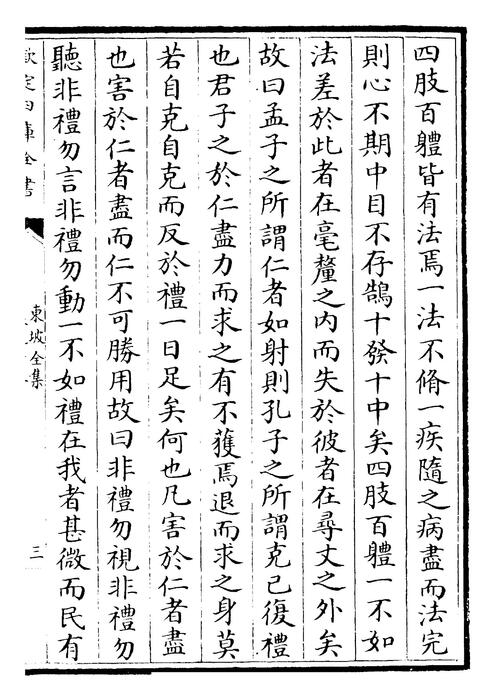 四肢百體皆有法焉一法不脩一疾隨之病盡而法完
則心不期中目不存鵠十發十中矣四肢百體一不如
法差於此者在毫釐之內而失於彼者在尋丈之外矣
故曰孟子之所謂仁者如射則孔子之所謂克已復禮
也君子之於仁盡力而求之有不獲焉退而求之身莫
若自克自克而反於禮一日足矣何也凡害於仁者盡
也害於仁者盡而仁不可勝用故曰非禮勿視非禮勿
聽非禮勿言非禮勿動一不如禮在我者甚微而民有
欽定四庫全書
東坡全集
三